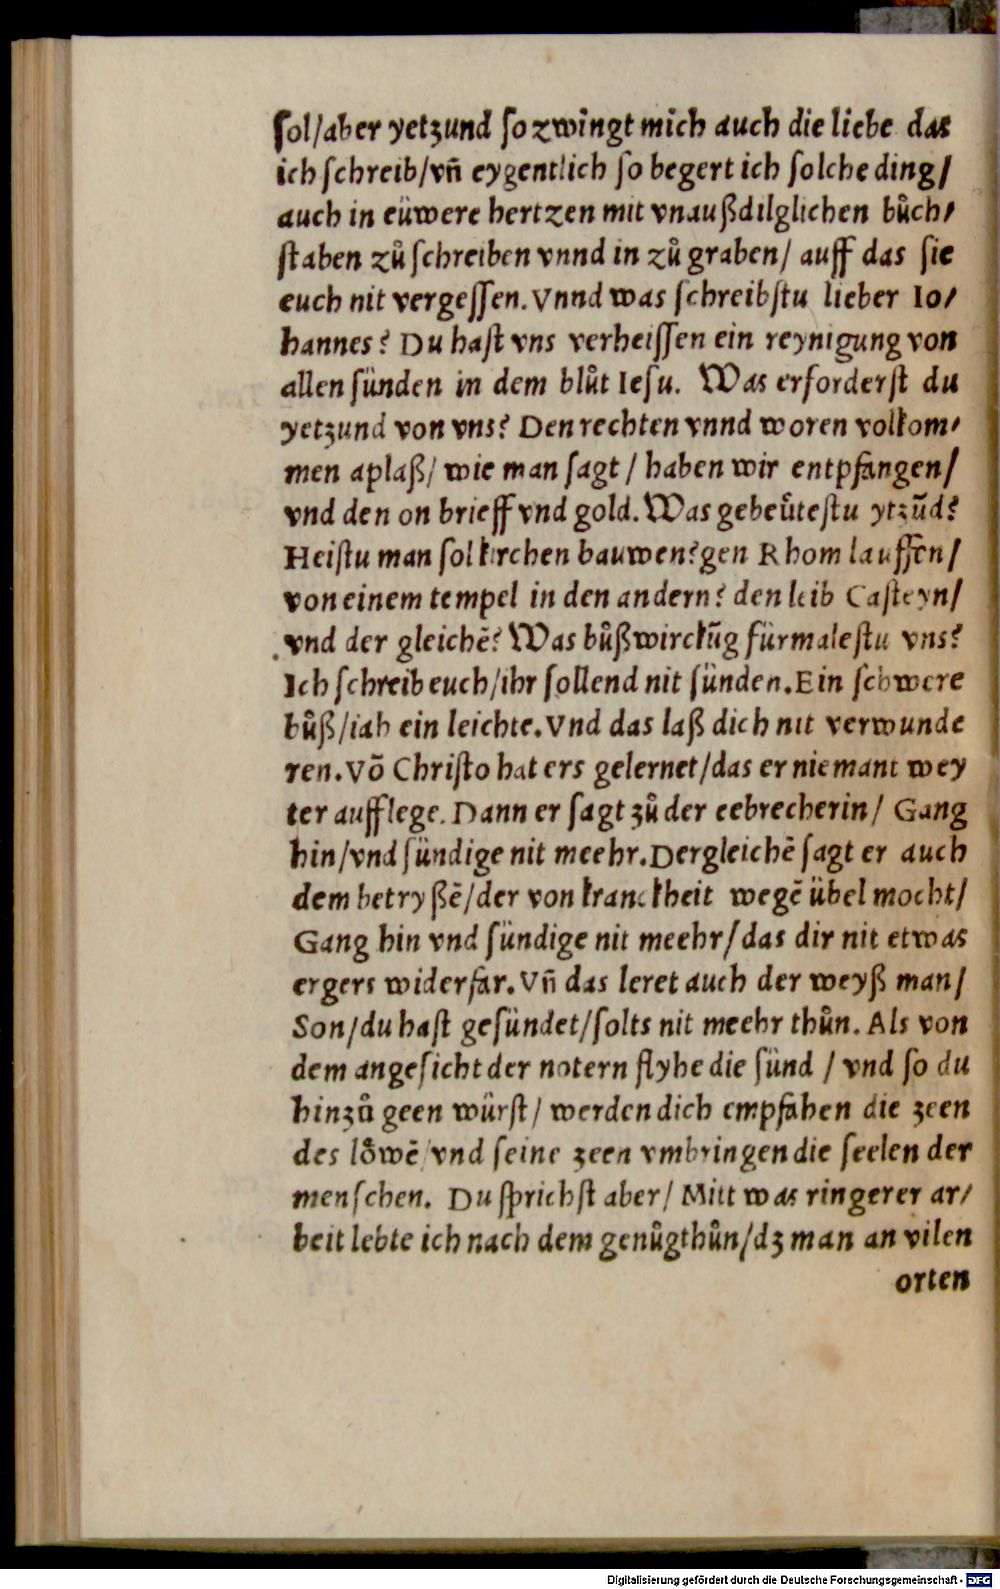 ſol/aber yetzund ſo zwingt mich auch die liebe das
ich ſchreib/vñ eygentlich ſo begert ich ſolche ding/
auch in eüwere hertzen mit vnaußdilglichen bůch⸗
ſtaben zů ſchreiben vnnd in zů graben/ auff das ſie
euch nit vergeſſen. Vnnd was ſchreibſtu lieber Io⸗
hannes? Du haſt vns verheiſſen ein reynigung von
allen ſünden in dem blůt Ieſu. Was erforderſt du
yetzund von vns? Den rechten vnnd woren volkom⸗
men aplaß/ wie man ſagt / haben wir entpfangen/
vnd den on brieff vnd gold. Was gebeüteſtu ytzūd?
Heiſtu man ſol kirchen bauwen? gen Rhom lauffen/
von einem tempel in den andern? den leib Caſteyn/
vnd der gleichē? Was bůßwirckūg fürmaleſtu vns?
Ich ſchreib euch/ihr ſollend nit ſünden. Ein ſchwere
bůß/iah ein leichte. Vnd das laß dich nit verwunde
ren. Vō Chriſto hat ers gelernet/das er niemant wey
ter aufflege. Dann er ſagt zů der eebrecherin/ Gang
hin/vnd ſündige nit meehr. Dergleichē ſagt er auch
dem betryßē/der von kranckheit wegē übel mocht/
Gang hin vnd ſündige nit meehr/das dir nit etwas
ergers widerfar. Vñ das leret auch der weyß man/
Son/du haſt geſündet/ſolts nit meehr thůn. Als von
dem angeſicht der notern flyhe die ſünd / vnd ſo du
hinzů geen würſt/ werden dich empfahen die zeen
des lo̊wē/vnd ſeine zeen vmbringen die ſeelen der
menſchen. Du ſprichſt aber/ Mitt was ringerer ar⸗
beit lebte ich nach dem genůgthůn/dz man an vilen
orten
Digitalisierung gefördert durch die Deutsche Forschungsgemeinschaft - DFG